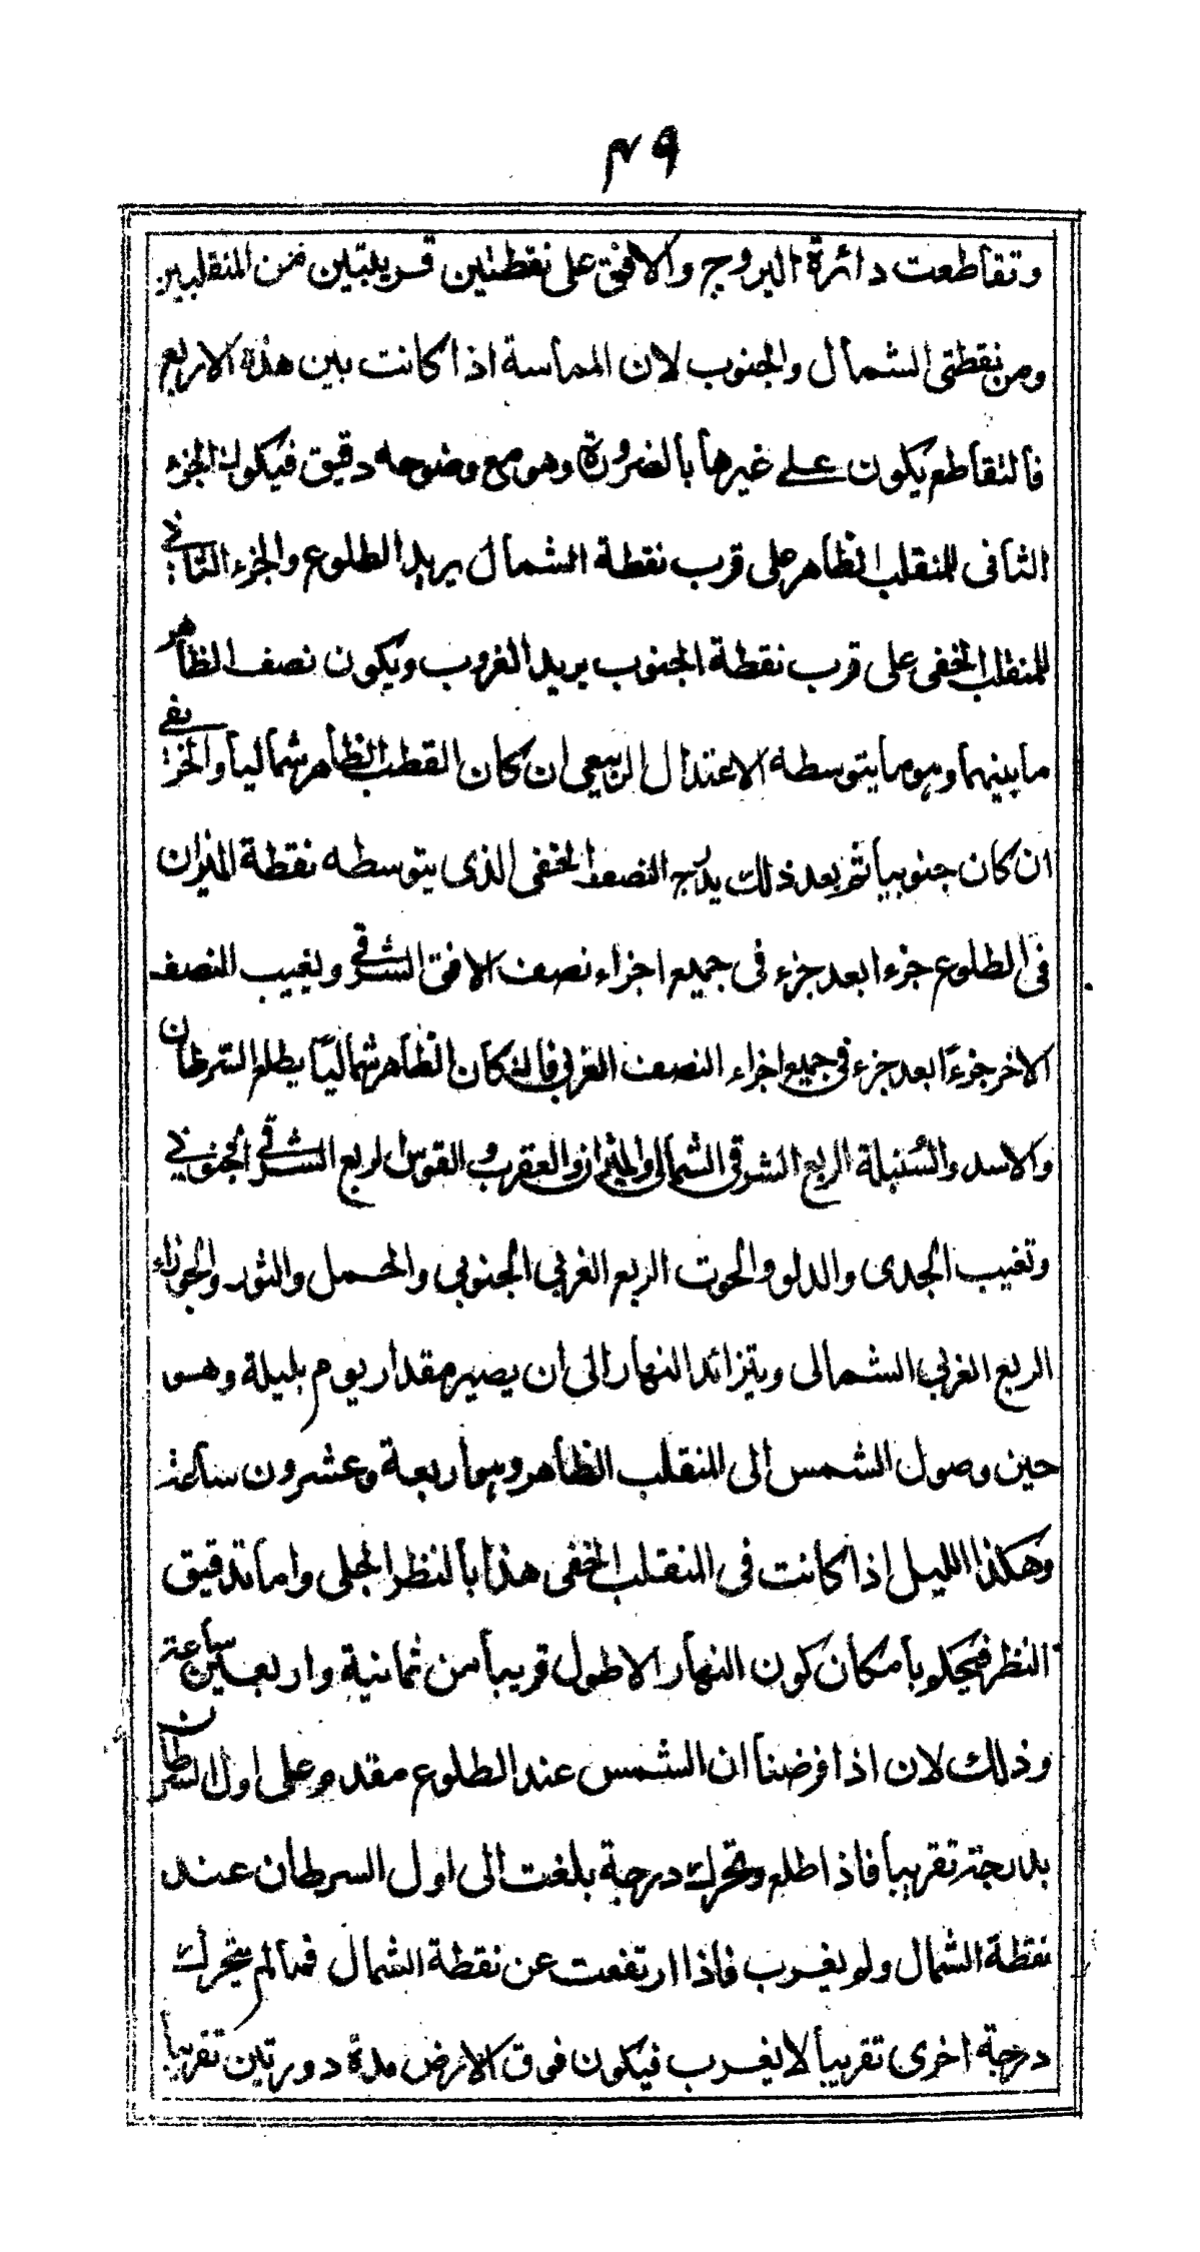 ٤٩
وتقاطعت دائرة البروج والافق على نقطتين قريبتين من المنقلبين
ومن نقطتى الشمال والجنوب لان المماسة اذا كانت بين هذه الاربع
فالتقاطع يكون على غيرها بالضرورة وهو مع وضوحه دقيق فيكون الجزء
الثانى للمنقلب الظاهر على قرب نقطة الشمال يريد الطلوع والجزء الثانى
للمنقلب الخفى على قرب نقطة الجنوب يريد الغروب ويكون نصف الظاهر
ما بينهما وهو ما يتوسطه الاعتدال الربيعى ان كان القطب الظاهر شماليا والخريفى
ان كان جنوبيا ثم بعد ذلك يدرج النصف الخفى الذى يتوسطه نقطة الميزان
فى الطلوع جزءا بعد جزء فى جميع اجزاء نصف الافق الشرقى ويغيب النصف
الاخر جزءًا بعد جزء فى جميع اجزاء النصف الغربى فان كان الظاهر شماليًا يطلع السرطان
والاسد والسُنبلة الربع الشرقى الشمالى والميزان والعقرب و القوس الربع الشرقى الجنوبى
وتغيب الجدى والدلو والحوت الربع الغربى الجنوبى والحمل والثور والجوزاء
الربع الغربى الشمالى ويتزائد النهار الى ان يصير مقدار يوم بليلة وهو
حين وصول الشمس الى المنقلب الظاهر وهو اربعة وعشرون ساعة
وهكذا الليل اذا كانت فى المنقلب الخفى هذا بالنظر الجلى واما تدقيق
النظر فيحكم بامكان كون النهار الاطول قريبا من ثمانية واربعين ساعة
وذلك لان اذا فرضنا ان الشمس عند الطلوع مقدم على اول السرطان
بدرجة تقريبا فاذا طلع وتحرك درجة بلغت الى اول السرطان عند
نقطة الشمال ولم يغرب فاذا ارتفعت عن نقطة الشمال فما لم يتحرك
درجة اخرى تقريبا لا يغرب فيكون فوق الارض مدة دورتين تقريبا